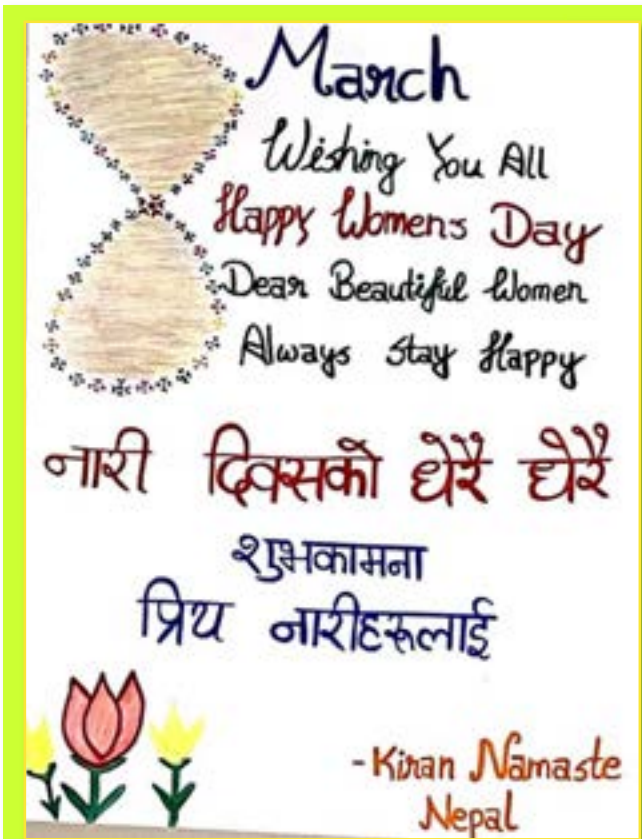 8 March
Wishing You All
Happy Womens Day
Dear Beautiful Women
Always stay Happy
नारी दिवसको धेरै धेरै
शुभकामना
प्रिय नारीहरूलाई
-Kiran Namaste
Nepal